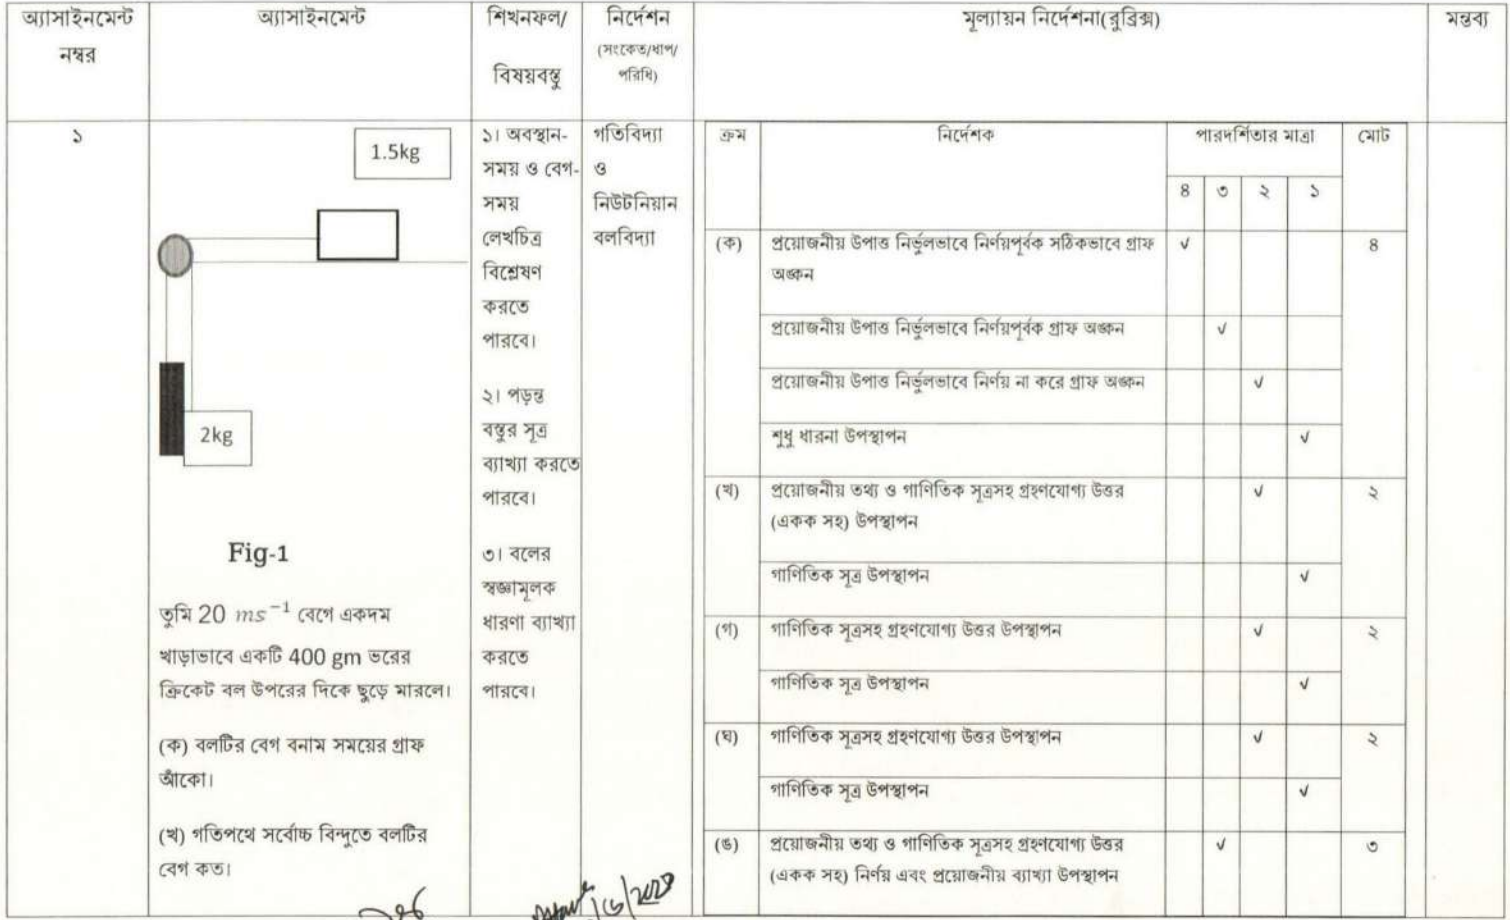 অ্যাসাইনমেন্ট নম্বর
অ্যাসাইনমেন্ট
শিখনফল/ বিষয়বস্তু
নির্দেশন (সংকেত/ধাপ/ পরিধি)
মূল্যায়ন নির্দেশনা(রুব্রিক্স)
মন্তব্য
১
1.5kg
2kg
Fig-1
তুমি 20 ms⁻¹ বেগে একদম
খাড়াভাবে একটি 400 gm ভরের
ক্রিকেট বল উপরের দিকে ছুড়ে মারলে।
(ক) বলটির বেগ বনাম সময়ের গ্রাফ
আঁকো।
(খ) গতিপথে সর্বোচ্চ বিন্দুতে বলটির
বেগ কত।
১। অবস্থান-
সময় ও বেগ-
সময়
লেখচিত্র
বিশ্লেষণ
করতে
পারবে।
২। পড়ন্ত
বস্তুর সূত্র
ব্যাখ্যা করতে
পারবে।
৩। বলের
স্বজ্ঞামূলক
ধারণা ব্যাখ্যা
করতে
পারবে।
গতিবিদ্যা
ও
নিউটনিয়ান
বলবিদ্যা
ক্রম নির্দেশক পারদর্শিতার মাত্রা মোট
৪ ৩ ২ ১
(ক) প্রয়োজনীয় উপাত্ত নির্ভুলভাবে নির্ণয়পূর্বক সঠিকভাবে গ্রাফ √ ৪
অঙ্কন
প্রয়োজনীয় উপাত্ত নির্ভুলভাবে নির্ণয়পূর্বক গ্রাফ অঙ্কন √
প্রয়োজনীয় উপাত্ত নির্ভুলভাবে নির্ণয় না করে গ্রাফ অঙ্কন √
শুধু ধারনা উপস্থাপন √
(খ) প্রয়োজনীয় তথ্য ও গাণিতিক সূত্রসহ গ্রহণযোগ্য উত্তর √ ২
(একক সহ) উপস্থাপন
গাণিতিক সূত্র উপস্থাপন √
(গ) গাণিতিক সূত্রসহ গ্রহণযোগ্য উত্তর উপস্থাপন √ ২
গাণিতিক সূত্র উপস্থাপন √
(ঘ) গাণিতিক সূত্রসহ গ্রহণযোগ্য উত্তর উপস্থাপন √ ২
গাণিতিক সূত্র উপস্থাপন √
(ঙ) প্রয়োজনীয় তথ্য ও গাণিতিক সূত্রসহ গ্রহণযোগ্য উত্তর √ ৩
(একক সহ) নির্ণয় এবং প্রয়োজনীয় ব্যাখ্যা উপস্থাপন